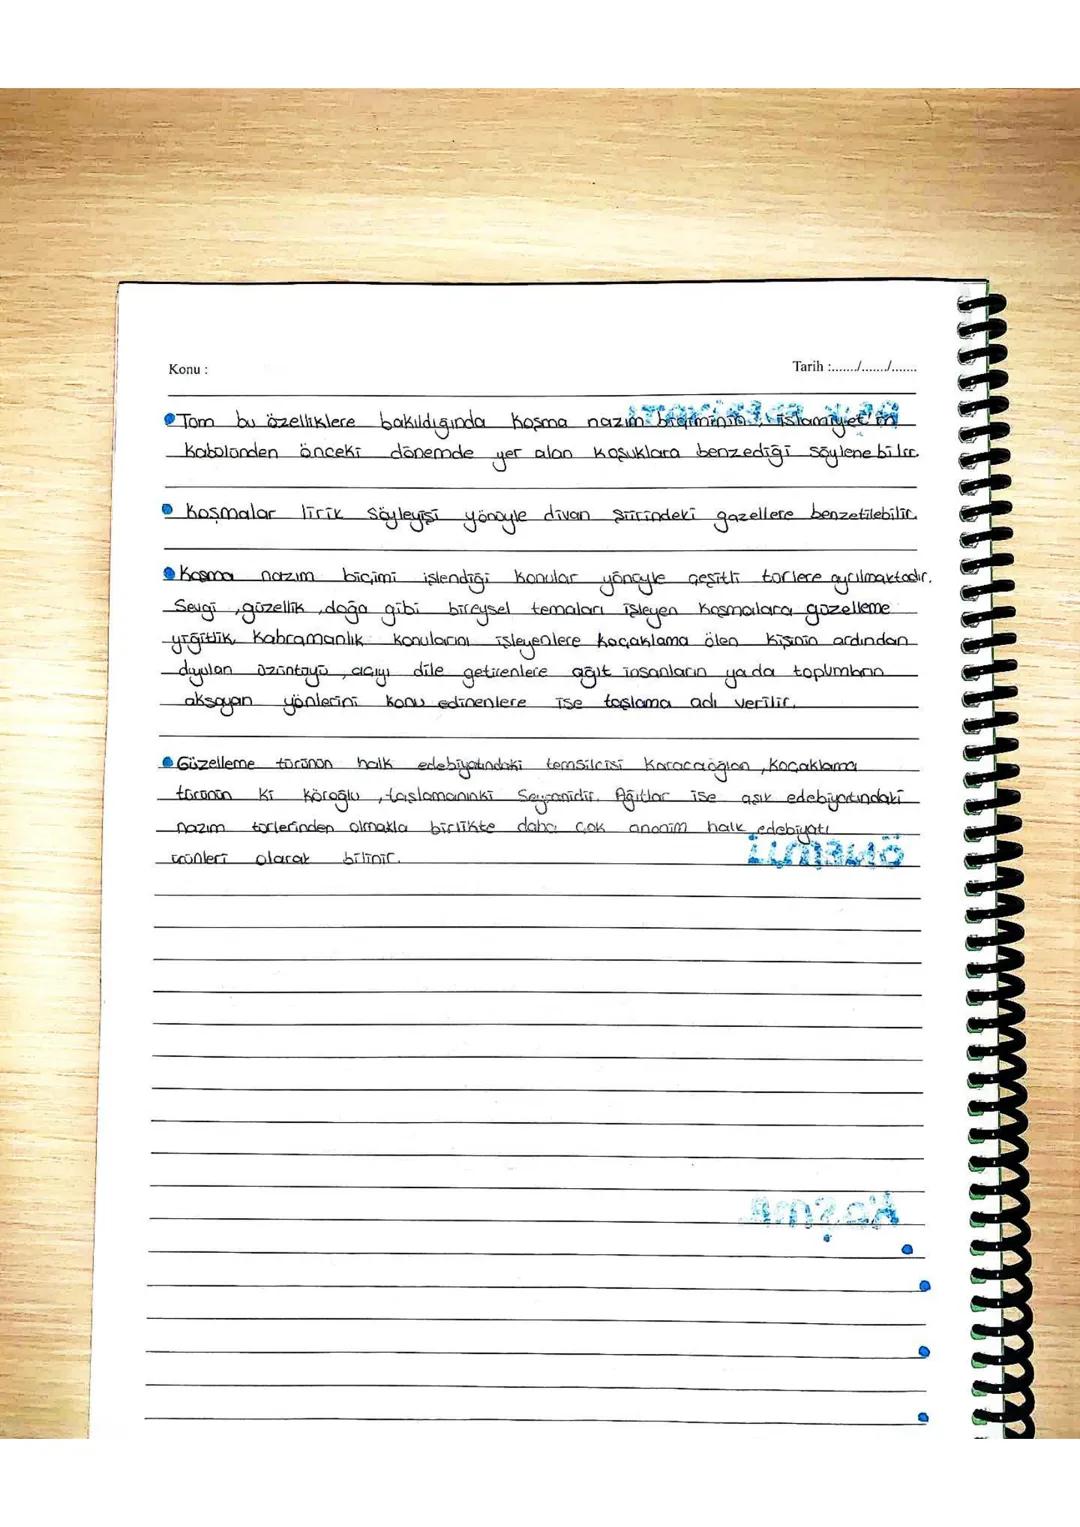 Konu :
Tarih :......./......./.......
Tüm bu özelliklere bakıldığında koşma nazım biçiminin, islamiyet'in
kabulünden önceki dönemde yer alan koşuklara benzediği söylenebilir.
Koşmalar lirik söyleyişi yönüyle divan şiirindeki gazellere benzetilebilir.
Koşma nazım biçimi işlendiği konular yönüyle çeşitli türlere ayrılmaktadır.
Sevgi, güzellik, doğa gibi bireysel temaları işleyen koşmalara güzelleme
yiğitlik, kahramanlık konularını işleyenlere koçaklama ölen kişinin ardından
duyulan üzüntüyü, acıyı dile getirenlere ağıt insanların ya da toplumların
aksayan yönlerini konu edinenlere ise taşlama adı verilir.
Güzelleme türünün halk edebiyatındaki temsilcisi Karacaoğlan, Koçaklama
türünün ki Köroğlu, taşlamanınki Seyranidir. Ağıtlar ise aşık edebiyatındaki
nazım türlerinden olmakla birlikte daha çok anonim halk edebiyatı
ürünleri olarak bilinir.
ÖNEMLİ
Koşma